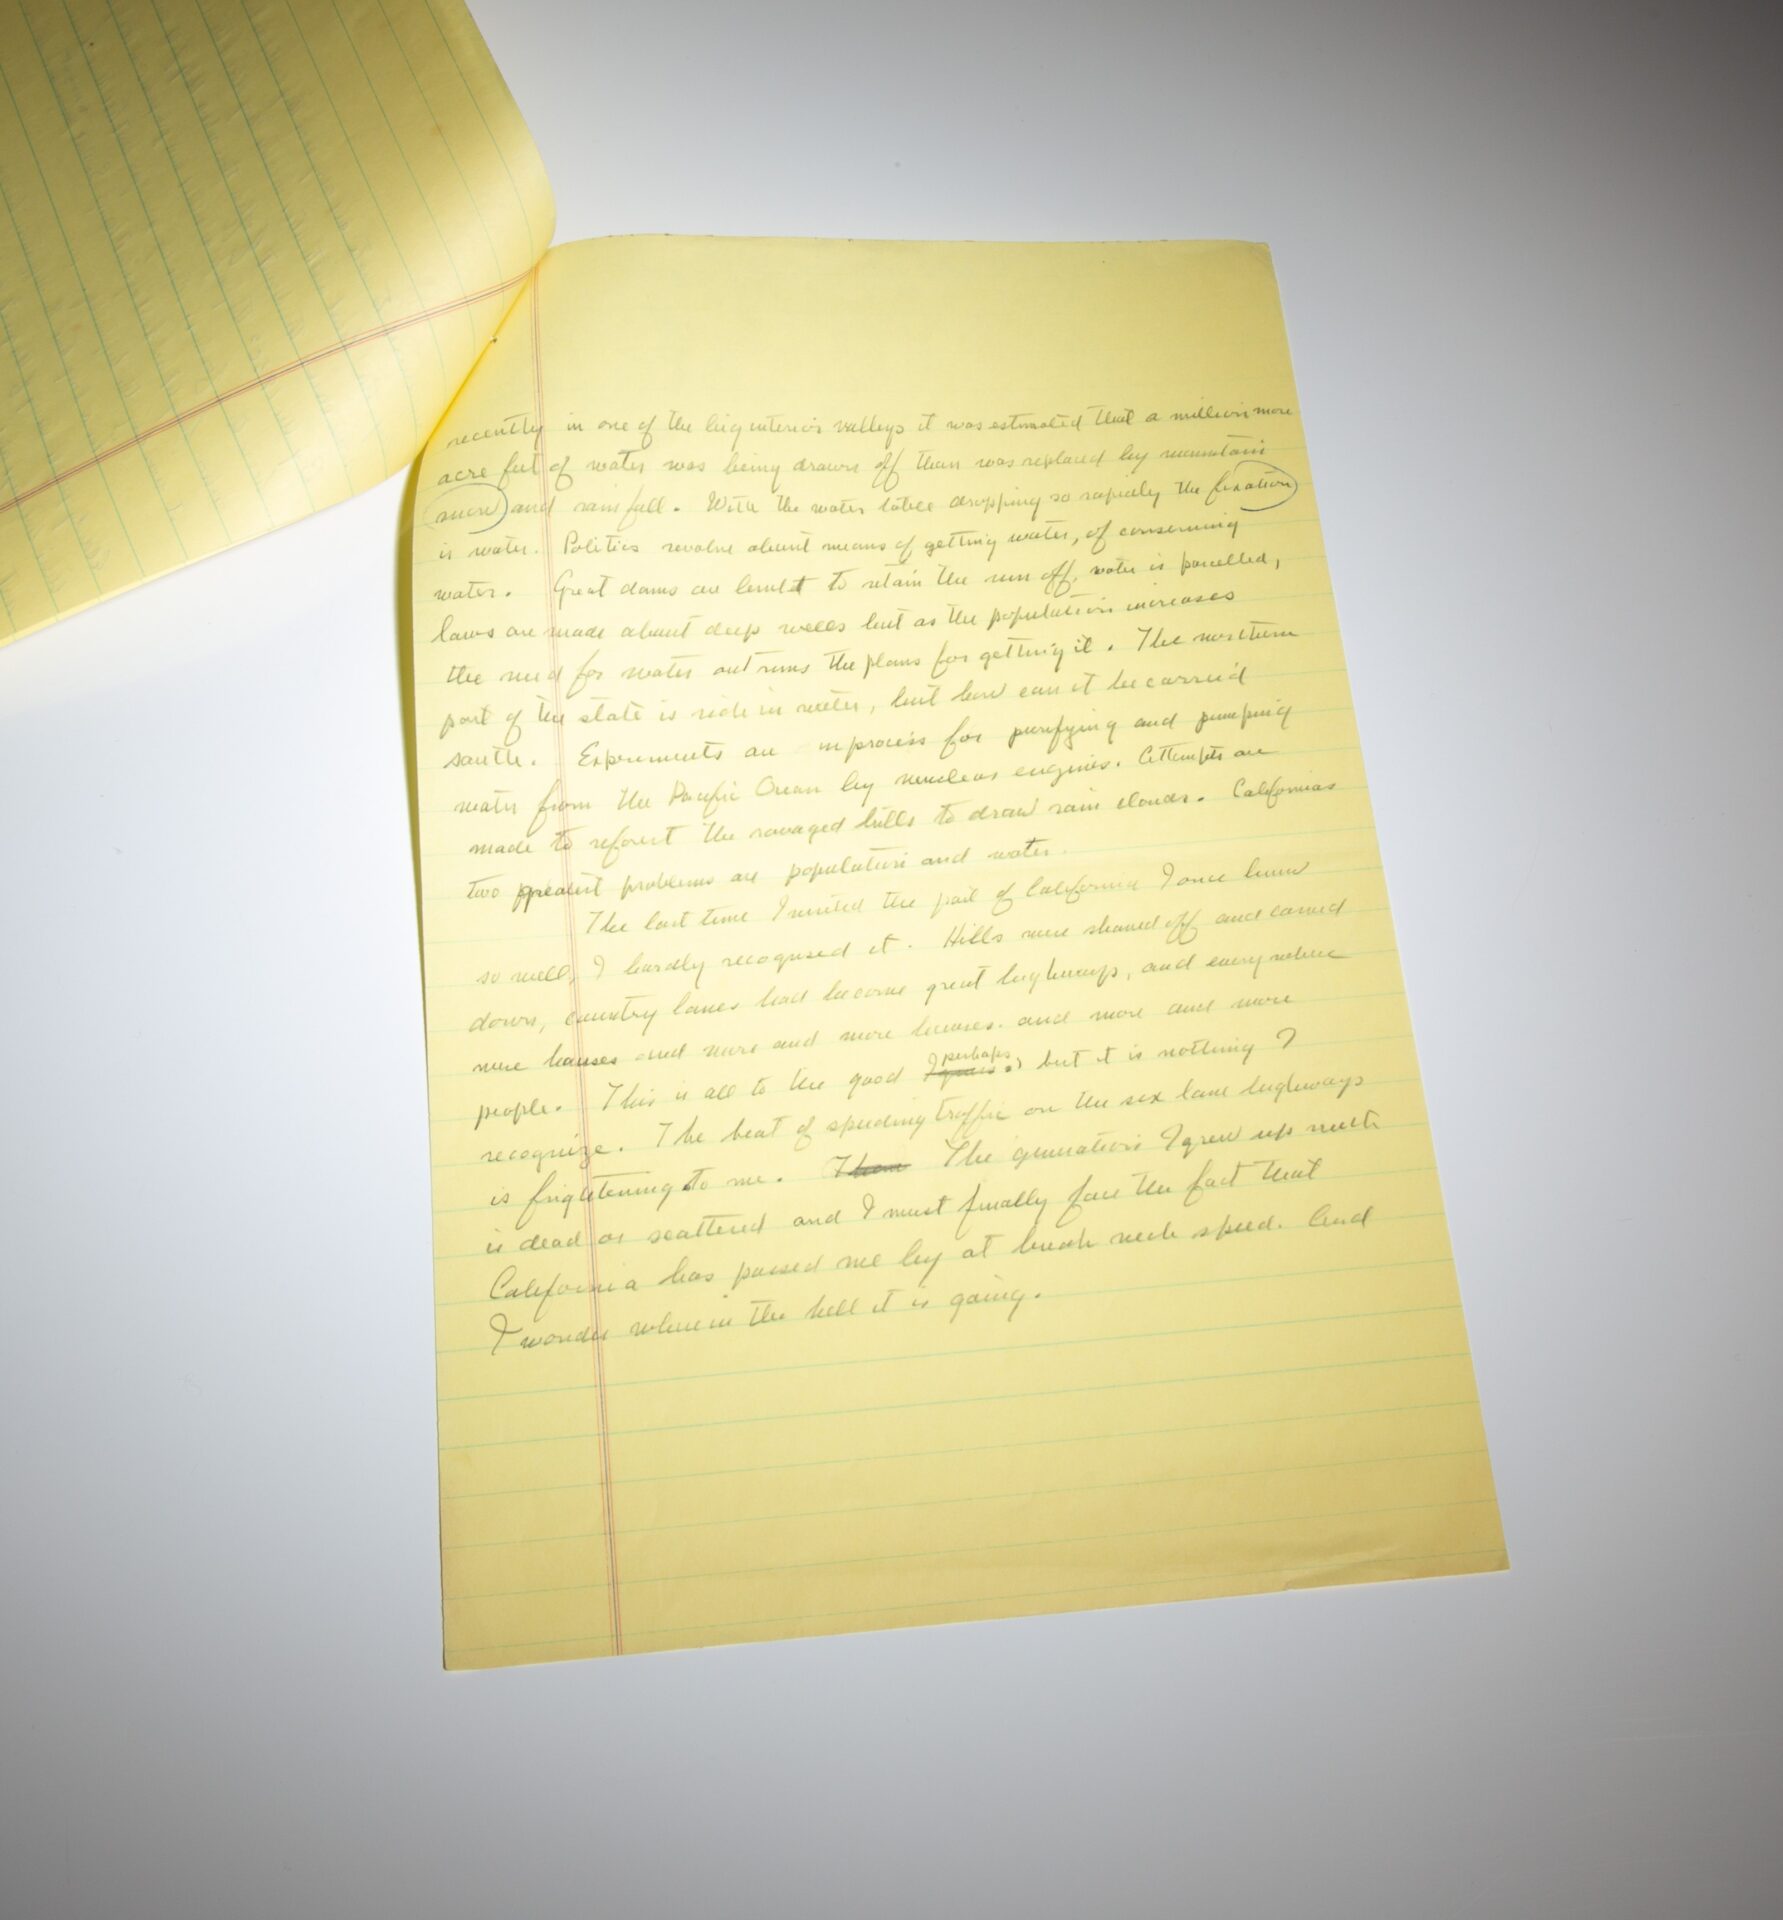 recently in one of the big interior valleys it was estimated that a million more
acre feet of water was being drawn off than was replaced by mountain
snow and rain fall. With the water table dropping so rapidly the fixation
is water. Politics revolve about means of getting water, of conserving
water. Great dams are built to retain the run off, water is parcelled,
laws are made about deep wells but as the population increases
the need for water out runs the plans for getting it. The northern
part of the state is rich in water, but how can it be carried
south. Experiments are in process for purifying and pumping
water from the Pacific Ocean by nuclear engines. Attempts are
made to reforest the ravaged hills to draw rain clouds. Californias
two greatest problems are population and water.
The last time I visited the part of California I once knew
so well, I hardly recognised it. Hills were shaved off and carved
down, country lanes had become great highways, and everywhere
were houses and more and more houses. and more and more
people. This is all to the good I guess. perhaps, but it is nothing I
recognize. The beat of speeding traffic on the six lane highways
is frightening to me. The generation I grew up with
is dead or scattered and I must finally face the fact that
California has passed me by at break neck speed. And
I wonder where in the hell it is going.